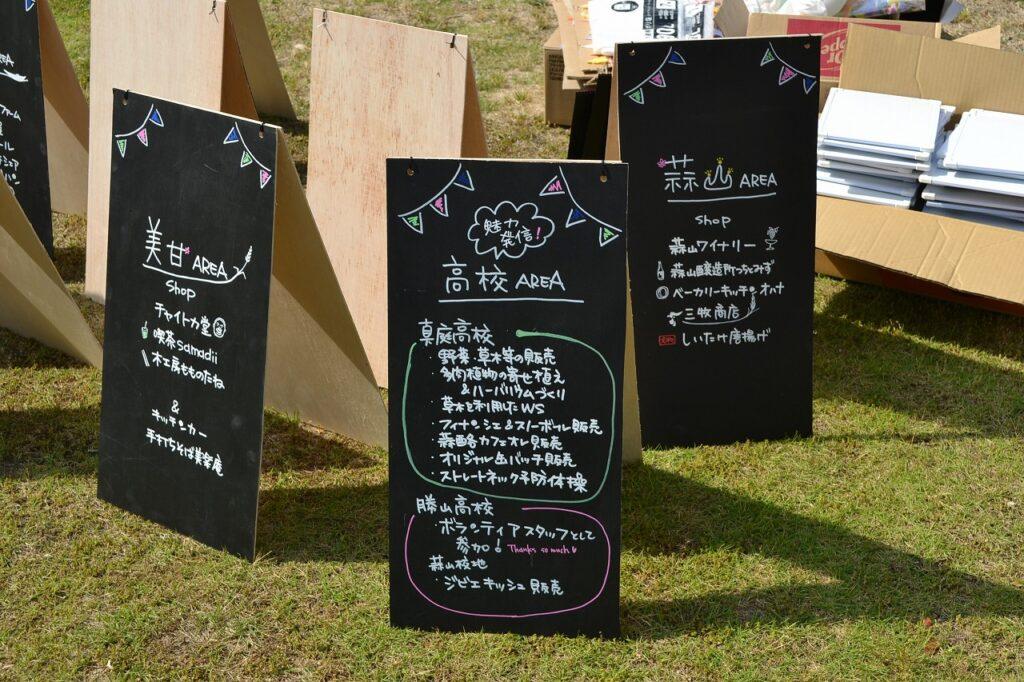 美甘 AREA
shop
チャイトカ堂
喫茶samadii
木工房もものたね
&
キッチンカー
手打ちそば美楽庵
魅力
発信!
高校 AREA
真庭高校
・野菜・草木等の販売
・多肉植物の寄せ植え
&ハーバリウムづくり
・草木を利用したWS
・フィナンシェ&スノーボール販売
・蒜酪カフェオレ販売
・オリジナル缶バッチ販売
・ストレートネック予防体操
勝山高校
・ボランティアスタッフとして
参加! Thanks so much
蒜山校地
・ジビエキッシュ販売
蒜山 AREA
shop
蒜山ワイナリー
蒜山醸造所つちとみず
ベーカリーキッチンオハナ
三牧商店
しいたけ唐揚げ